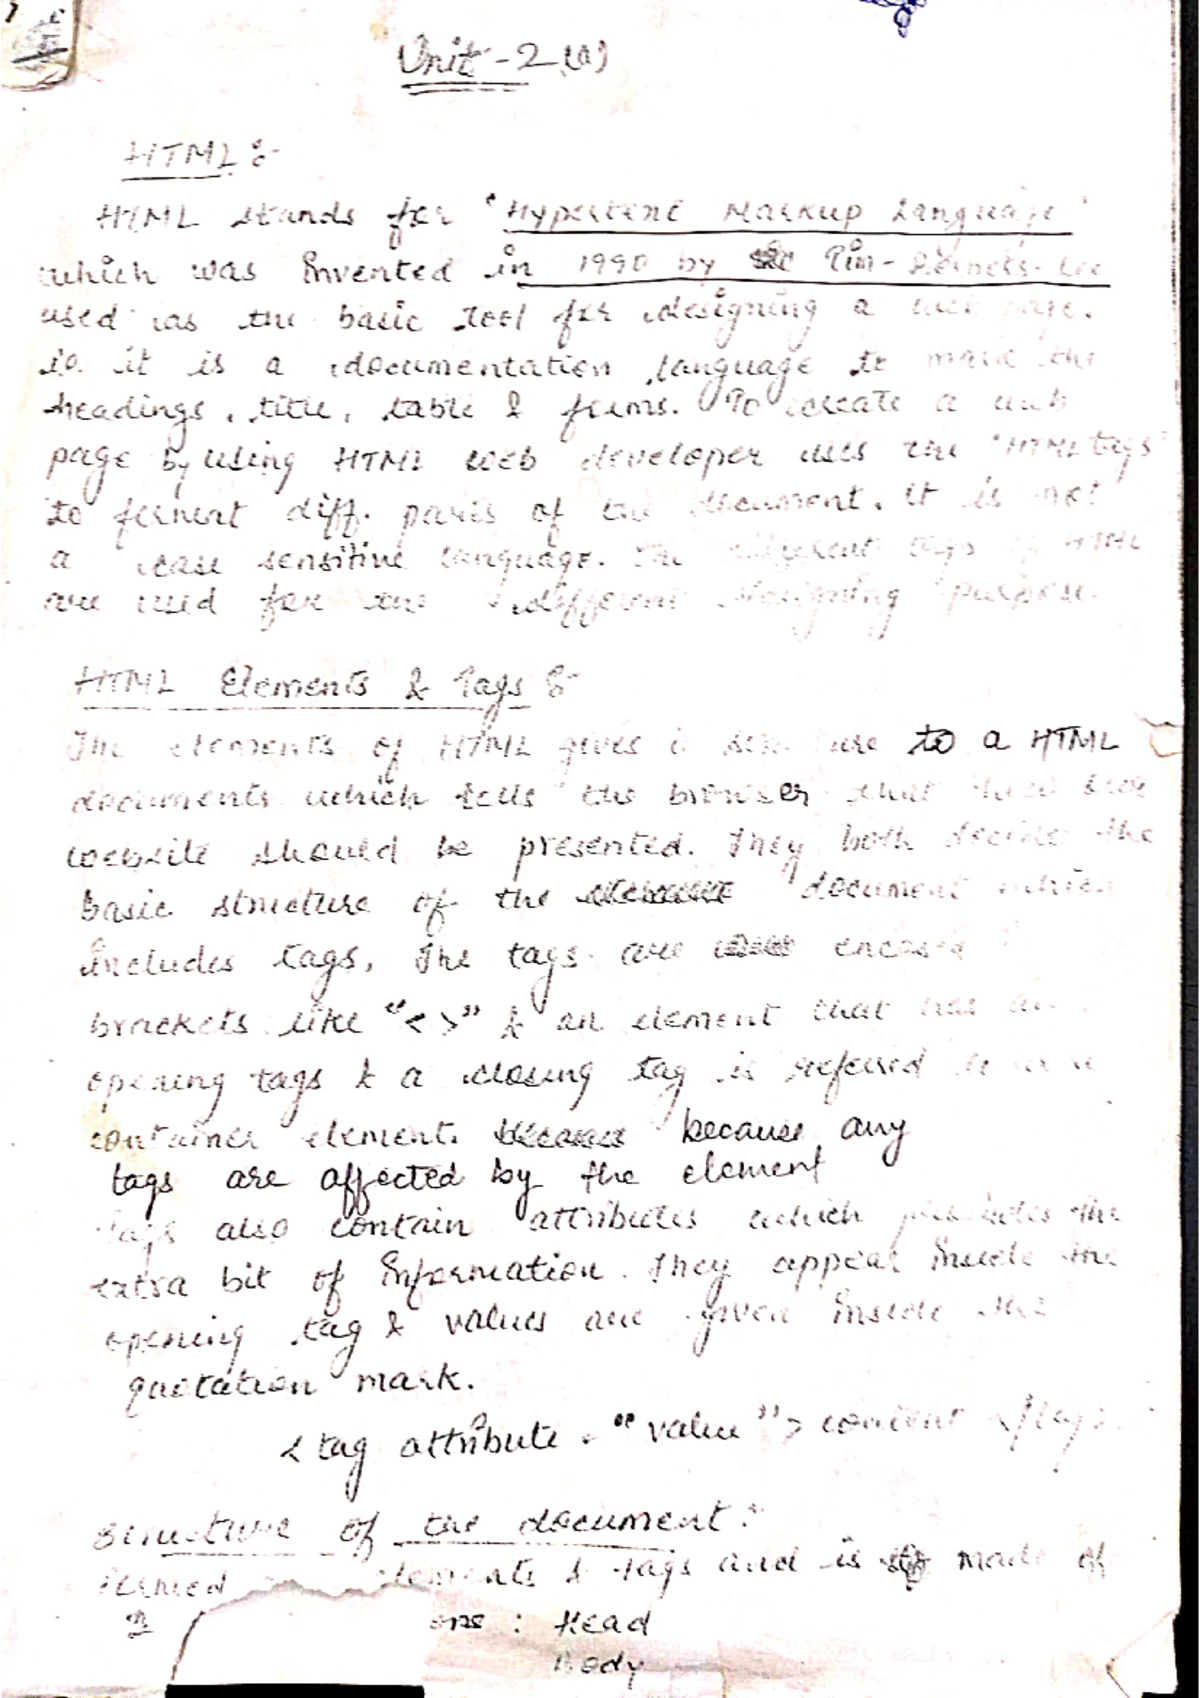 Unit-2(a)
HTML :-
HTML stands for "Hypertext Markup Language"
which was invented in 1990 by Tim-Berners-Lee
used as the basic tool for designing a web page.
i.e. it is a documentation language to mark the
headings, title, table & forms. To create a web
page by using HTML web developer uses the "HTML tags"
to format diff. parts of the document. it is not
a case sensitive language. The different tags of HTML
are used for the different designing purpose.
HTML Elements & Tags :-
The elements of HTML gives a structure to a HTML
documents which tells the browser that how
website should be presented. They both decide the
basic structure of the document which
includes tags, The tags are encased
brackets like "< >" & an element that has an
opening tags & a closing tag is refered
container element. because any
tags are affected by the element
tags also contain attributes which the
extra bit of information. They appear inside the
opening tag & values are given inside the
quotation mark.
< tag attribute = "value" > content </tag>
Structure of the document :-
elements & tags and is made of
: Head
Body